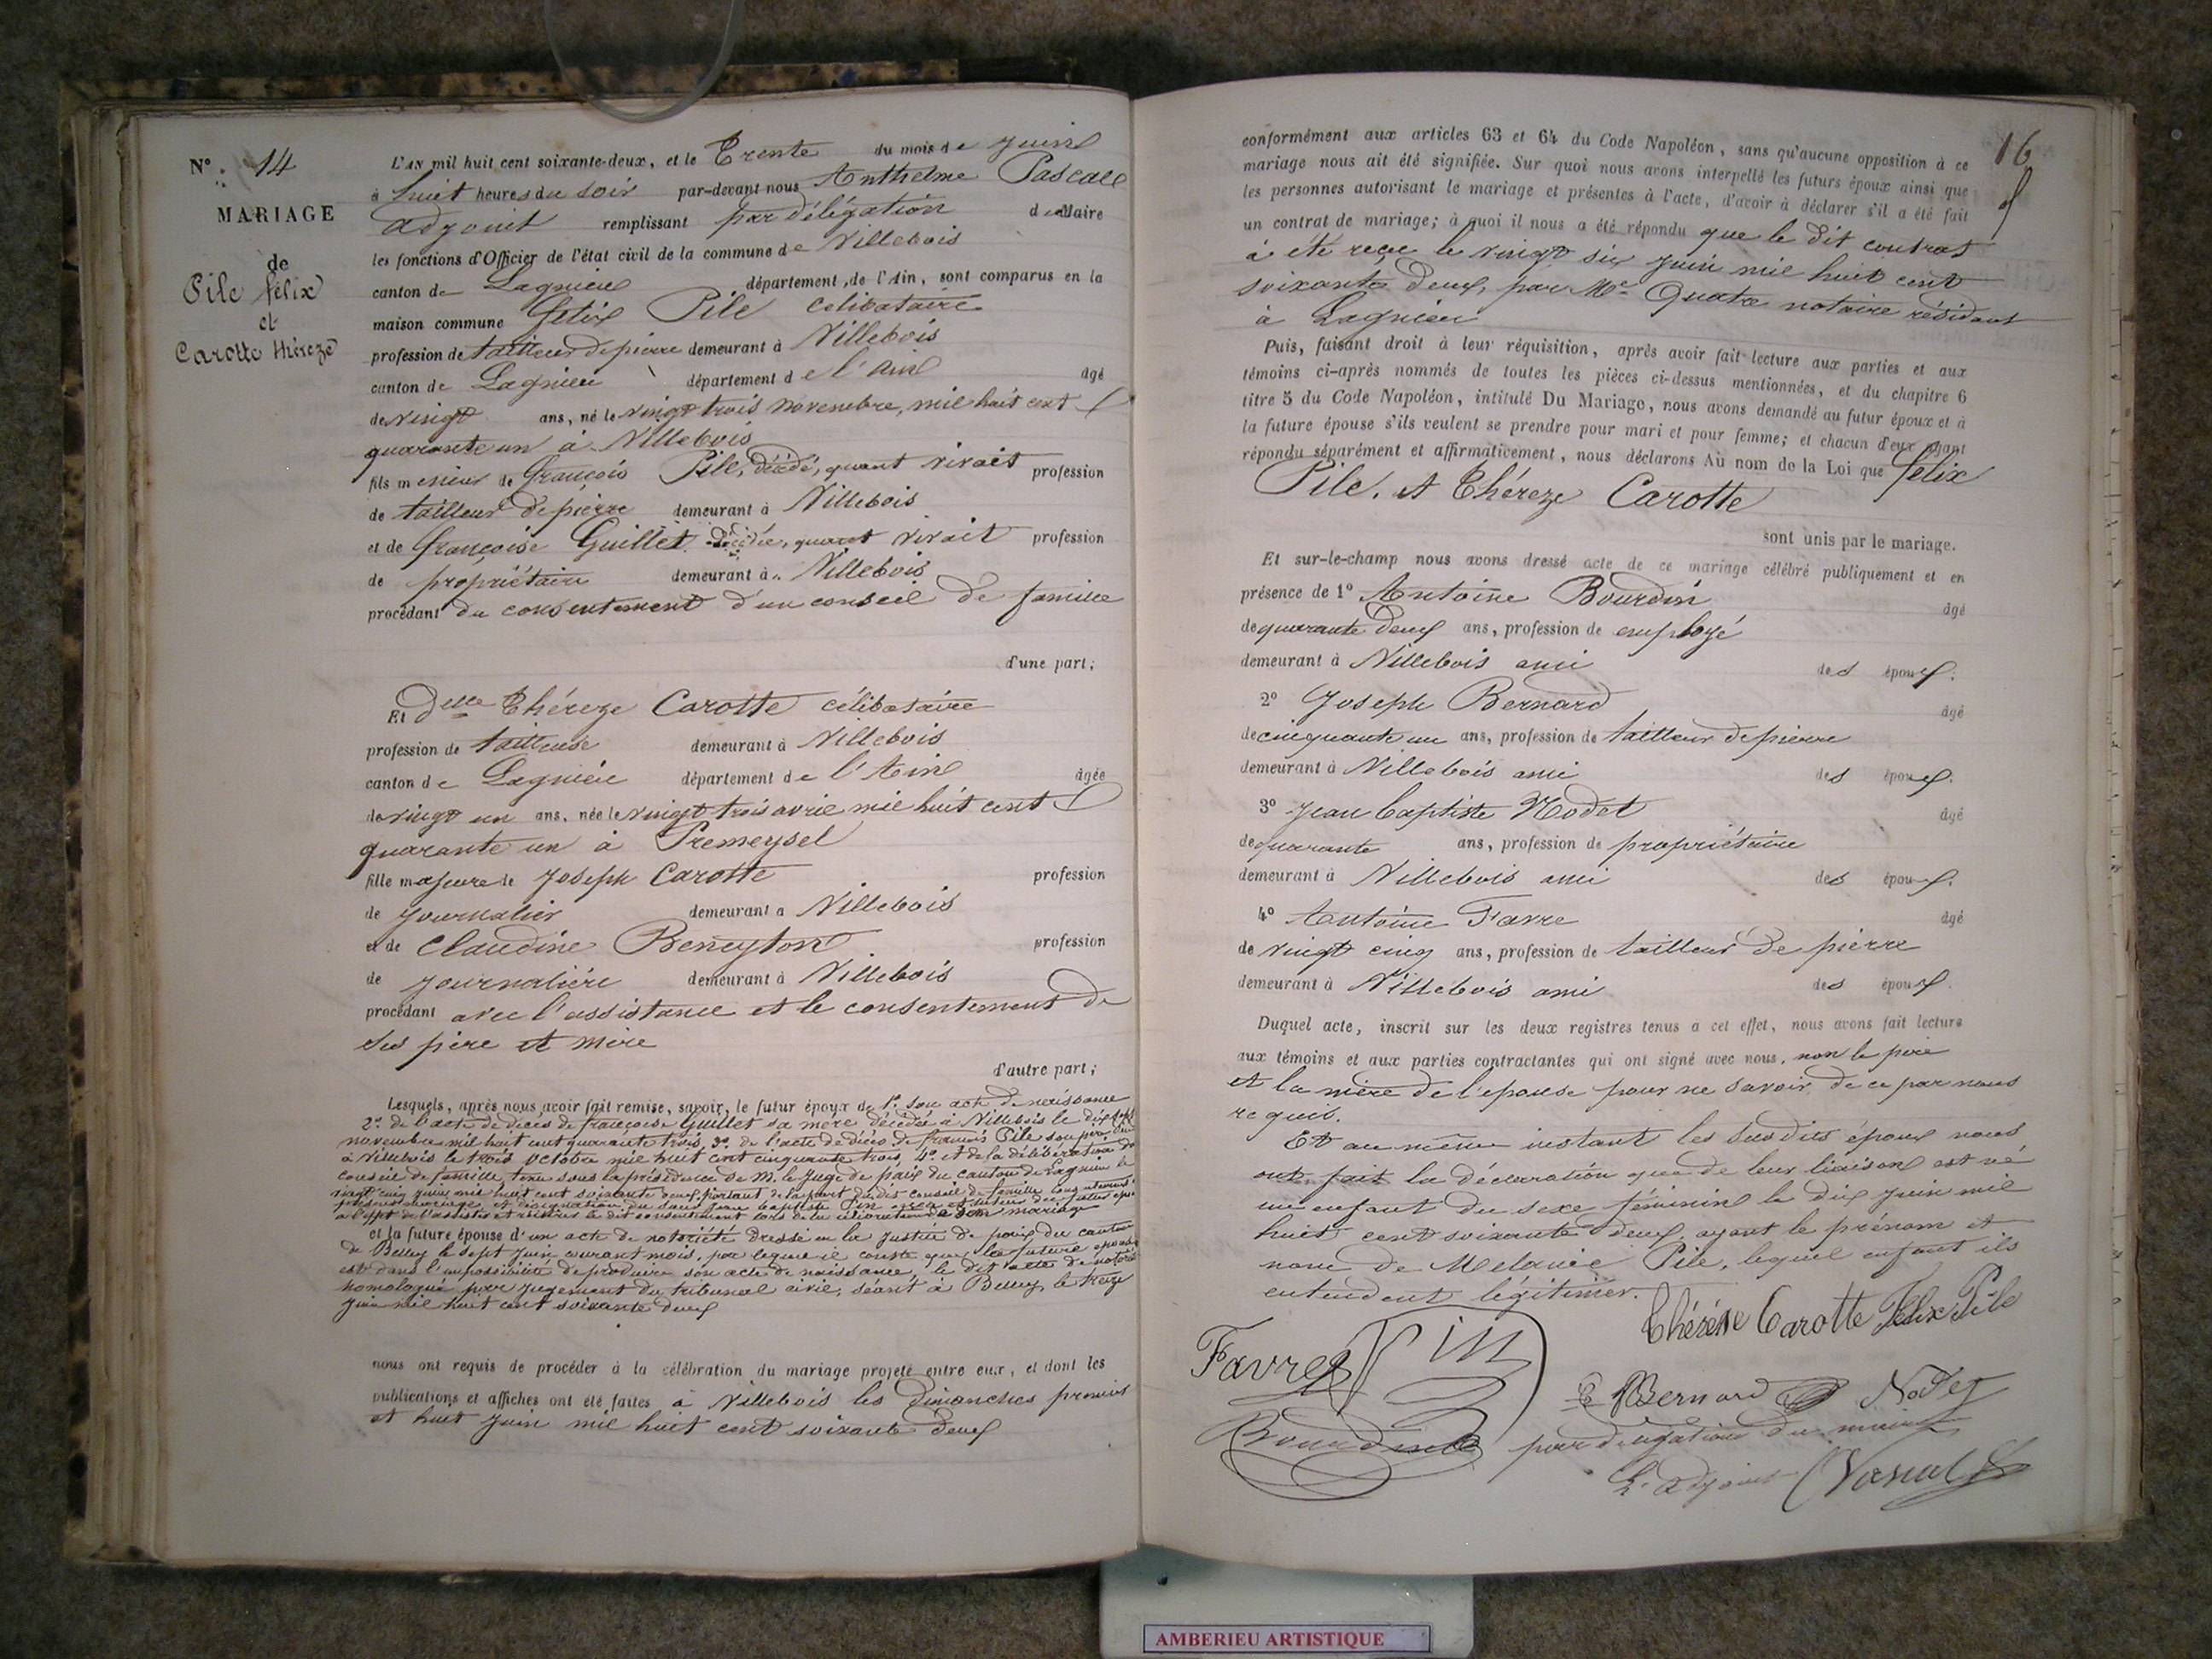 N° 14
MARIAGE
de
Pile félix
et
Carotte théreze
L'AN mil huit cent soixante-deux, et le Trente du mois de Juin
à huit heures du soir par-devant nous Anthelme Pascal
adjoint remplissant par délégation du Maire
les fonctions d'Officier de l'état civil de la commune de Villebois
canton de Lagnieu département de l'Ain, sont comparus en la
maison commune félix Pile célibataire
profession de tailleur de pierre demeurant à Villebois
canton de Lagnieu département de l'Ain âgé
de vingt ans, né le vingt trois novembre, mil huit cent
quarante un à Villebois
fils mineur de françois Pile, décédé, quant vivait profession
de tailleur de pierre demeurant à Villebois
et de françoise Guillet décédée, quant vivait profession
de propriétaire demeurant à Villebois
procédant du consentement d'un conseil de famille
d'une part;
Et delle Théreze Carotte célibataire
profession de tailleuse demeurant à Villebois
canton de Lagnieu département de l'Ain âgée
de vingt un ans, née le vingt trois avril mil huit cent
quarante un à Premeysel
fille majeure de Joseph Carotte profession
de journalier demeurant à Villebois
et de Claudine Beneyton profession
de journalière demeurant à Villebois
procédant avec l'assistance et le consentement de
ses père et mère
d'autre part;
Lesquels, après nous avoir fait remise, savoir, le futur époux de 1° son acte de naissance
2° de l'acte de décès de françoise Guillet sa mère décédée à Villebois le dix sept
novembre mil huit cent quarante trois, 3° de l'acte de décès de françois Pile son père
à Villebois le trois octobre mil huit cent cinquante trois, 4° et de la délibération du
conseil de famille tenu sous la présidence de M. le Juge de paix du canton de Lagnieu le
vingt cinq juin mil huit cent soixante deux, portant de la part du dit conseil de famille
mariage, et désignation du sieur Jean Baptiste Pin
à l'effet de l'assister et réitérer le dit consentement lors de la célébration de son mariage
et la future épouse d'un acte de notoriété dressé en la justice de paix du canton
de Belley le sept juin courant mois, par lequel il conste que la future épouse
est dans l'impossibilité de produire son acte de naissance, le dit acte de notoriété
homologué par jugement du tribunal civil, séant à Belley, le treize
juin mil huit cent soixante deux
nous ont requis de procéder à la célébration du mariage projeté entre eux, et dont les
publications et affiches ont été faites à Villebois les Dimanches premier
et huit juin mil huit cent soixante deux
16
conformément aux articles 63 et 64 du Code Napoléon, sans qu'aucune opposition à ce
mariage nous ait été signifiée. Sur quoi nous avons interpellé les futurs époux ainsi que
les personnes autorisant le mariage et présentes à l'acte, d'avoir à déclarer s'il a été fait
un contrat de mariage; à quoi il nous a été répondu que le dit contrat
à été reçu le vingt six juin mil huit cent
soixante deux, par Me Quatre notaire résidant
à Lagnieu
Puis, faisant droit à leur réquisition, après avoir fait lecture aux parties et aux
témoins ci-après nommés de toutes les pièces ci-dessus mentionnées, et du chapitre 6
titre 5 du Code Napoléon, intitulé Du Mariage, nous avons demandé au futur époux et à
la future épouse s'ils veulent se prendre pour mari et pour femme; et chacun d'eux ayant
répondu séparément et affirmativement, nous déclarons Au nom de la Loi que félix
Pile, et Théreze Carotte
sont unis par le mariage.
Et sur-le-champ nous avons dressé acte de ce mariage célébré publiquement et en
présence de 1° Antoine Bourdin âgé
de quarante deux ans, profession de employé
demeurant à Villebois ami des époux.
2° Joseph Bernard âgé
de cinquante un ans, profession de tailleur de pierre
demeurant à Villebois ami des époux.
3° Jean Baptiste Nodet âgé
de quarante ans, profession de propriétaire
demeurant à Villebois ami des époux.
4° Antoine Favre âgé
de vingt cinq ans, profession de tailleur de pierre
demeurant à Villebois ami des époux.
Duquel acte, inscrit sur les deux registres tenus à cet effet, nous avons fait lecture
aux témoins et aux parties contractantes qui ont signé avec nous, non le père
et la mère de l'épouse pour ne savoir, de ce par nous
requis.
Et au même instant les susdits époux nous
ont fait la déclaration que de leur liaison est né
un enfant du sexe féminin le dix juin mil
huit cent soixante deux, ayant le prénom et
nom de Melanie Pile, lequel enfant ils
entendent légitimer.
Thérése Carotte Felix Pile
Favre Pin
Bernard Nodet
Bourdin par délégation du maire
L'adjoint Pascal
AMBERIEU ARTISTIQUE